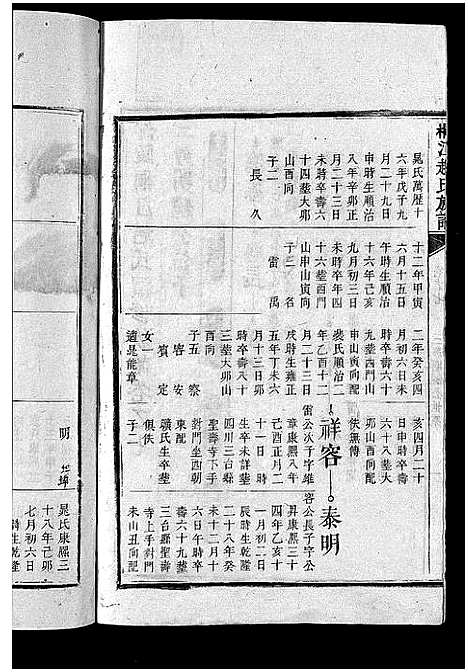 桐江趙氏族譜
晁氏萬歷十
六年戊子九
月二十九日
申時生順治
八年辛卯正
月二十三日
未時卒壽六
十四葬大卯
山酉向
子二
長 久
十二年甲寅
六月十五日
午時生順治
十六年己亥
九月初三日
未時卒年四
十六葬西門
山申山寅向
子二 名
雷 禹
二年癸亥四
月初六日未
時卒壽六十
九葬西門山
申山寅向配
裴氏順治二
年乙酉十二
月二十三日
戌時生雍正
五年丁未六
月十三日卯
時卒壽八十
三葬大卯山
酉向
子五 察
容 安
賓 定
女一
適晁能章
亥四月二十
日申時卒壽
六十八葬大
卯山酉向配
佚無傳
祥容 泰明
雷公次子字維
章康熙八年
己酉正月二
十一日 時
生卒未詳葬
四川三台縣
聖壽寺下手
對門坐酉朝
東配
顏氏生卒葬
俱佚
子二
容公長子字公
昇康熙三十
四年乙亥十
一月初二日
辰時生乾隆
二十八年癸
未十二月十
六日時卒
壽六十九葬
三台縣聖壽
寺上手對門
未山丑向配
明
晁氏康熙三
十八年己卯
七月初六日
時生乾隆